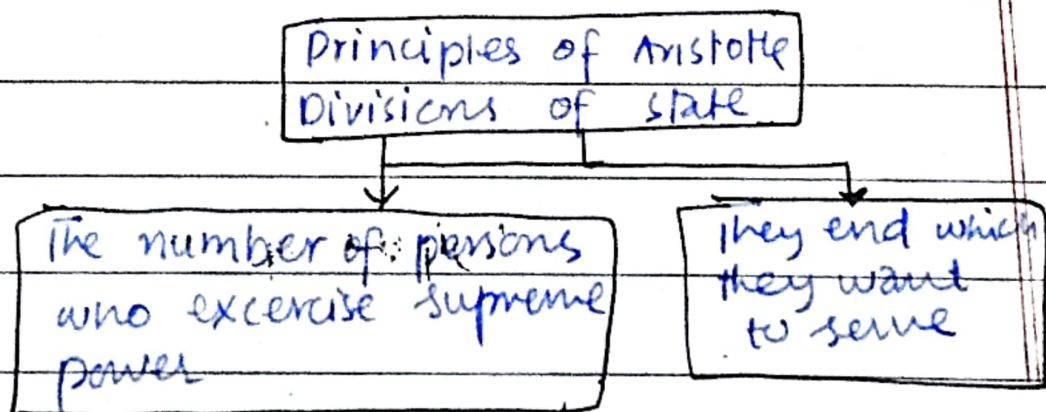 Principles of Aristotle
Divisions of state
The number of persons
who excercise supreme
power
They end which
they want
to serve